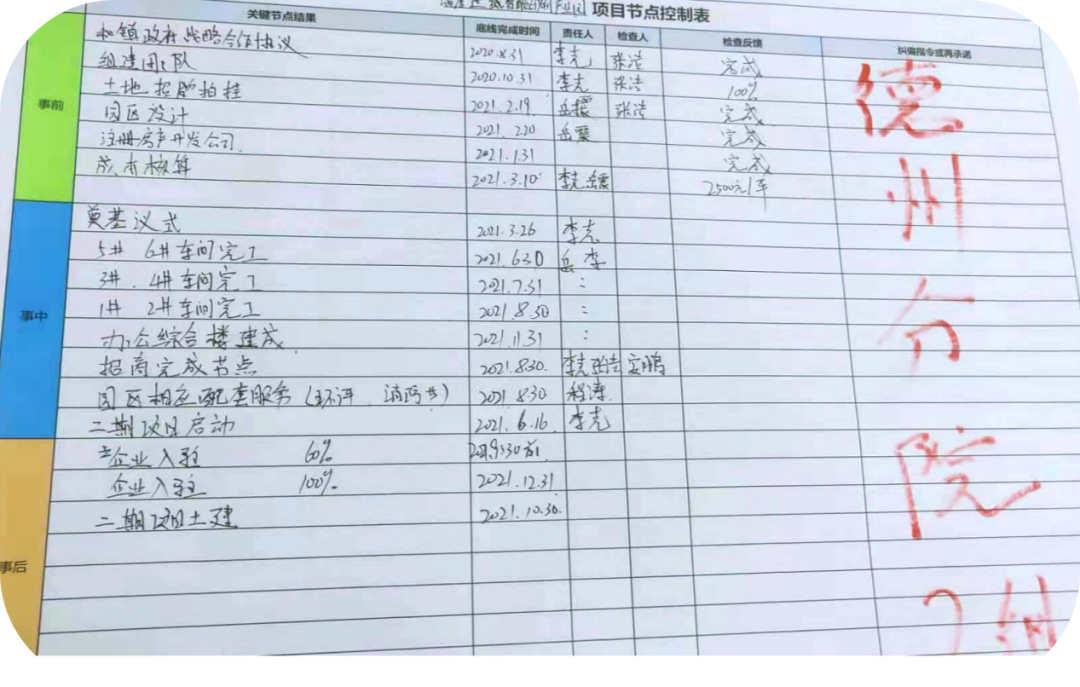 项目节点控制表
关键节点结果 底线完成时间 责任人 检查人 检查反馈 纠偏指令或再承诺
事前
和镇政府战略合作协议 2020.8.31 李克 张浩 完成
组建团队 2020.10.31 李克 张浩 100%
土地招脂拍挂 2021.2.19. 岳 张浩 完成
园区设计 2021.2.20 岳 完成
注册房产开发公司. 2021.1.31 完成
成本核算 2021.3.10 李克 岳 2500元/平
事中
奠基议式 2021.3.26 李克
5# 6#车间完工 2021.6.30 岳 李
3#. 4#车间完工 2021.7.31 :
1# 2#车间完工 2021.8.30 :
办公综合楼建成. 2021.11.31 :
招商完成节点 2021.8.30. 李克 张浩 安鹏
园区相应配套服务(环评 消防#) 2021 8.30 程涛
二期项目启动 2021.6.16. 李克
企业入驻 60% 9.30前
企业入驻 100% 2021.12.31
二期项目土建 2021.10.30.
事后
德州分院
2组